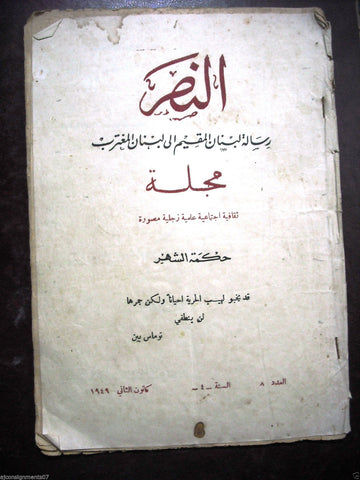 النصر
رسالة لبنان المقيم الى لبنان المغترب
مجلة
ثقافية اجتماعية علمية زجلية مصورة
حكمة الشهر
قد يخبو لهيب الحرية احياناً ولكن جمرها
لن ينطفي
توماس بين
العدد ٨ السنة -٤- كانون الثاني ١٩٤٩
ajconsignments07